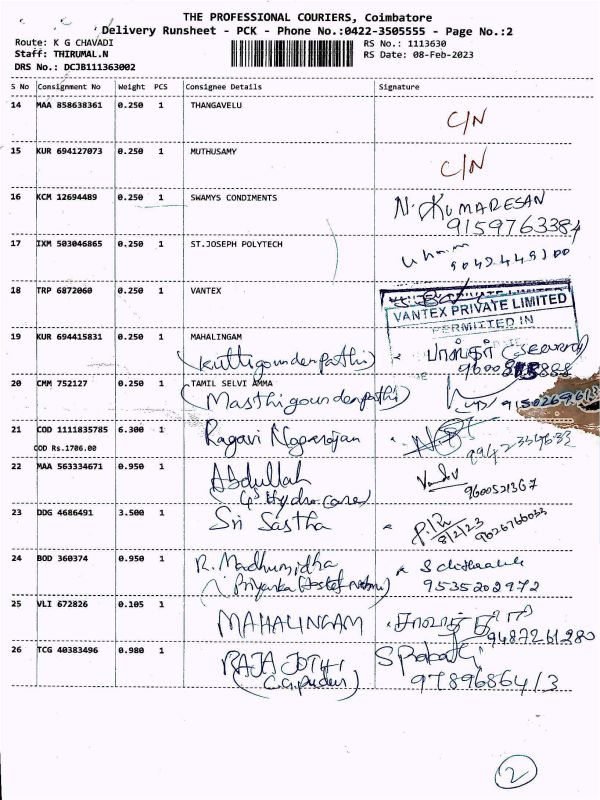 THE PROFESSIONAL COURIERS, Coimbatore
Delivery Runsheet - PCK - Phone No.:0422-3505555 - Page No.:2
Route: K G CHAVADI
RS No.: 1113630
Staff: THIRUMAL.N
RS Date: 08-Feb-2023
DRS No.: DCJB111363002
S No Consignment No Weight PCS Consignee Details Signature
14 MAA 858638361 0.250 1 THANGAVELU C/N
15 KUR 694127073 0.250 1 MUTHUSAMY C/N
16 KCM 12694489 0.250 1 SWAMYS CONDIMENTS N. KUMARESAN
9159763384
17 IXM 503046865 0.250 1 ST.JOSEPH POLYTECH
9042449100
18 TRP 6872060 0.250 1 VANTEX
VANTEX PRIVATE LIMITED
PERMITTED IN
19 KUR 694415831 0.250 1 MAHALINGAM
(Kuttigoundenpathi)
20 CMM 752127 0.250 1 TAMIL SELVI AMMA
(Masthigoundenpathi) 9150269613
21 COD 1111835785 6.300 1 Ragavi Nagarajan
COD Rs.1706.00
22 MAA 563334671 0.950 1 Abdullah
9600521367
23 DDG 4686491 3.500 1 Sri Sastha
8/2/23 9026766033
24 BOD 360374 0.950 1 R. Madhumidha
9535202972
25 VLI 672826 0.105 1 MAHALINGAM
9487261280
26 TCG 40383496 0.980 1 RAJA JOTHI
9789686413
2